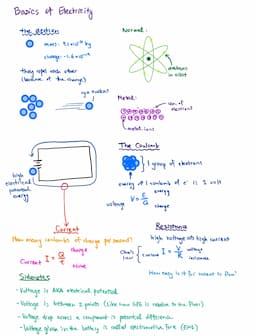 Basics of Electricity
the electron
mass: 9.1×10⁻³¹ kg
charge: -1.6×10⁻¹⁹
they repel each other
(because of the charge)
Normal:
electrons
in orbit
Metal:
sea of
electrons
metal ions
high
electrical
potential
energy
The Coulomb
1 group of electrons
energy of 1 coulomb of e⁻ is 1 volt
voltage V = E/Q
energy
charge
Current
How many coulombs of charge per second?
Current I = Q/t
charge
time
Resistance
high voltage → high current
Ohm's
law
current I = V/R
voltage
resistance
How easy is it for current to flow?
Sidenotes
- Voltage is AKA electrical potential
- Voltage is between 2 points
- Voltage drop across a component is potential difference
- Voltage given in the battery is called electromotive force (EMF)